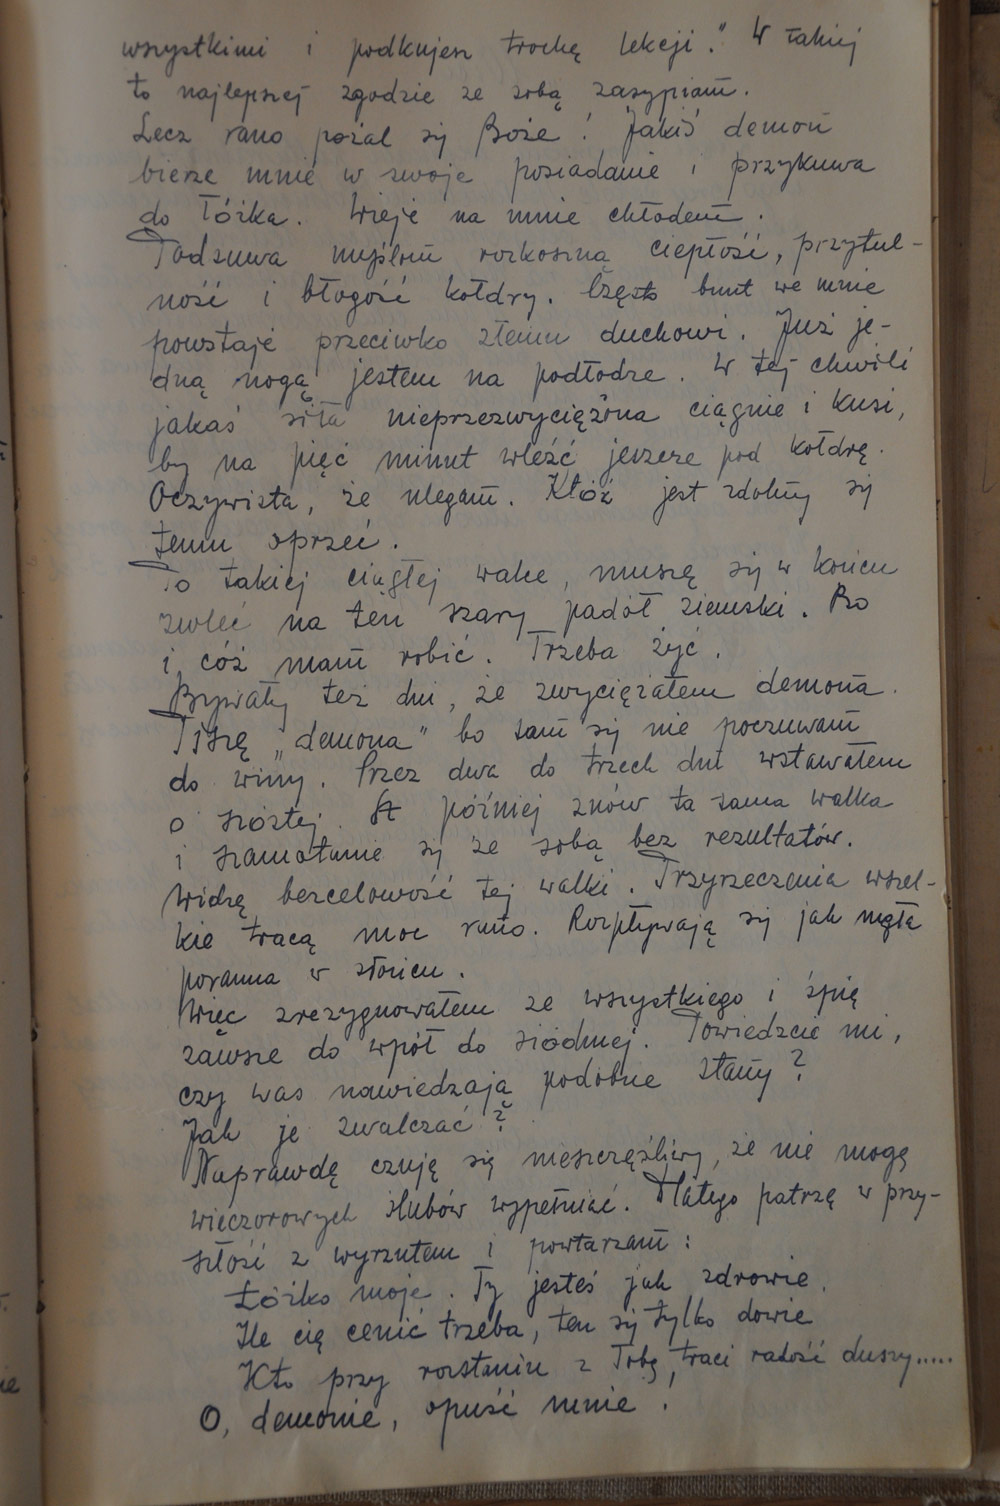 wszystkimi i podkujesz trochę lekcji." W takiej
to najlepszej zgodzie ze sobą zasypiam.
Lecz rano pożal się Boże! Jakiś demon
bierze mnie w swoje posiadanie i przykuwa
do łóżka. Wieje na mnie chłodem.
Podsuwa myślom rozkoszną ciepłość, przytul-
ność i błogość kołdry. Często bunt we mnie
powstaje przeciwko złemu duchowi. Już je-
dną nogą jestem na podłodze. W tej chwili
jakaś siła nieprzezwyciężona ciągnie i kusi,
by na pięć minut wleźć jeszcze pod kołdrę.
Oczywista, że ulegam. Któż jest zdolny się
temu oprzeć.
Po takiej ciągłej walce, muszę się w końcu
zwlec na ten szary padół ziemski. Bo
i cóż mam robić. Trzeba żyć.
Bywały też dni, że zwyciężałem demona.
Piszę „demona" bo sam się nie poczuwam
do winy. Przez dwa do trzech dni wstawałem
o szóstej. A później znów ta sama walka
i szamotanie się ze sobą bez rezultatów.
Widzę bezcelowość tej walki. Przyrzeczenia wszel-
kie tracą moc rano. Rozpływają się jak mgła
poranna w słońcu.
Więc zrezygnowałem ze wszystkiego i śpię
zawsze do wpół do siódmej. Powiedzcie mi,
czy was nawiedzają podobne stany?
Jak je zwalczać?
Naprawdę czuję się nieszczęśliwy, że nie mogę
wieczorowych ślubów wypełniać. Dlatego patrzę w przy-
szłość z wyrzutem i powtarzam:
Łóżko moje. Ty jesteś jak zdrowie.
Ile cię cenić trzeba, ten się tylko dowie
Kto przy rozstaniu z Tobą, traci radość duszy.....
O, demonie, opuść mnie!